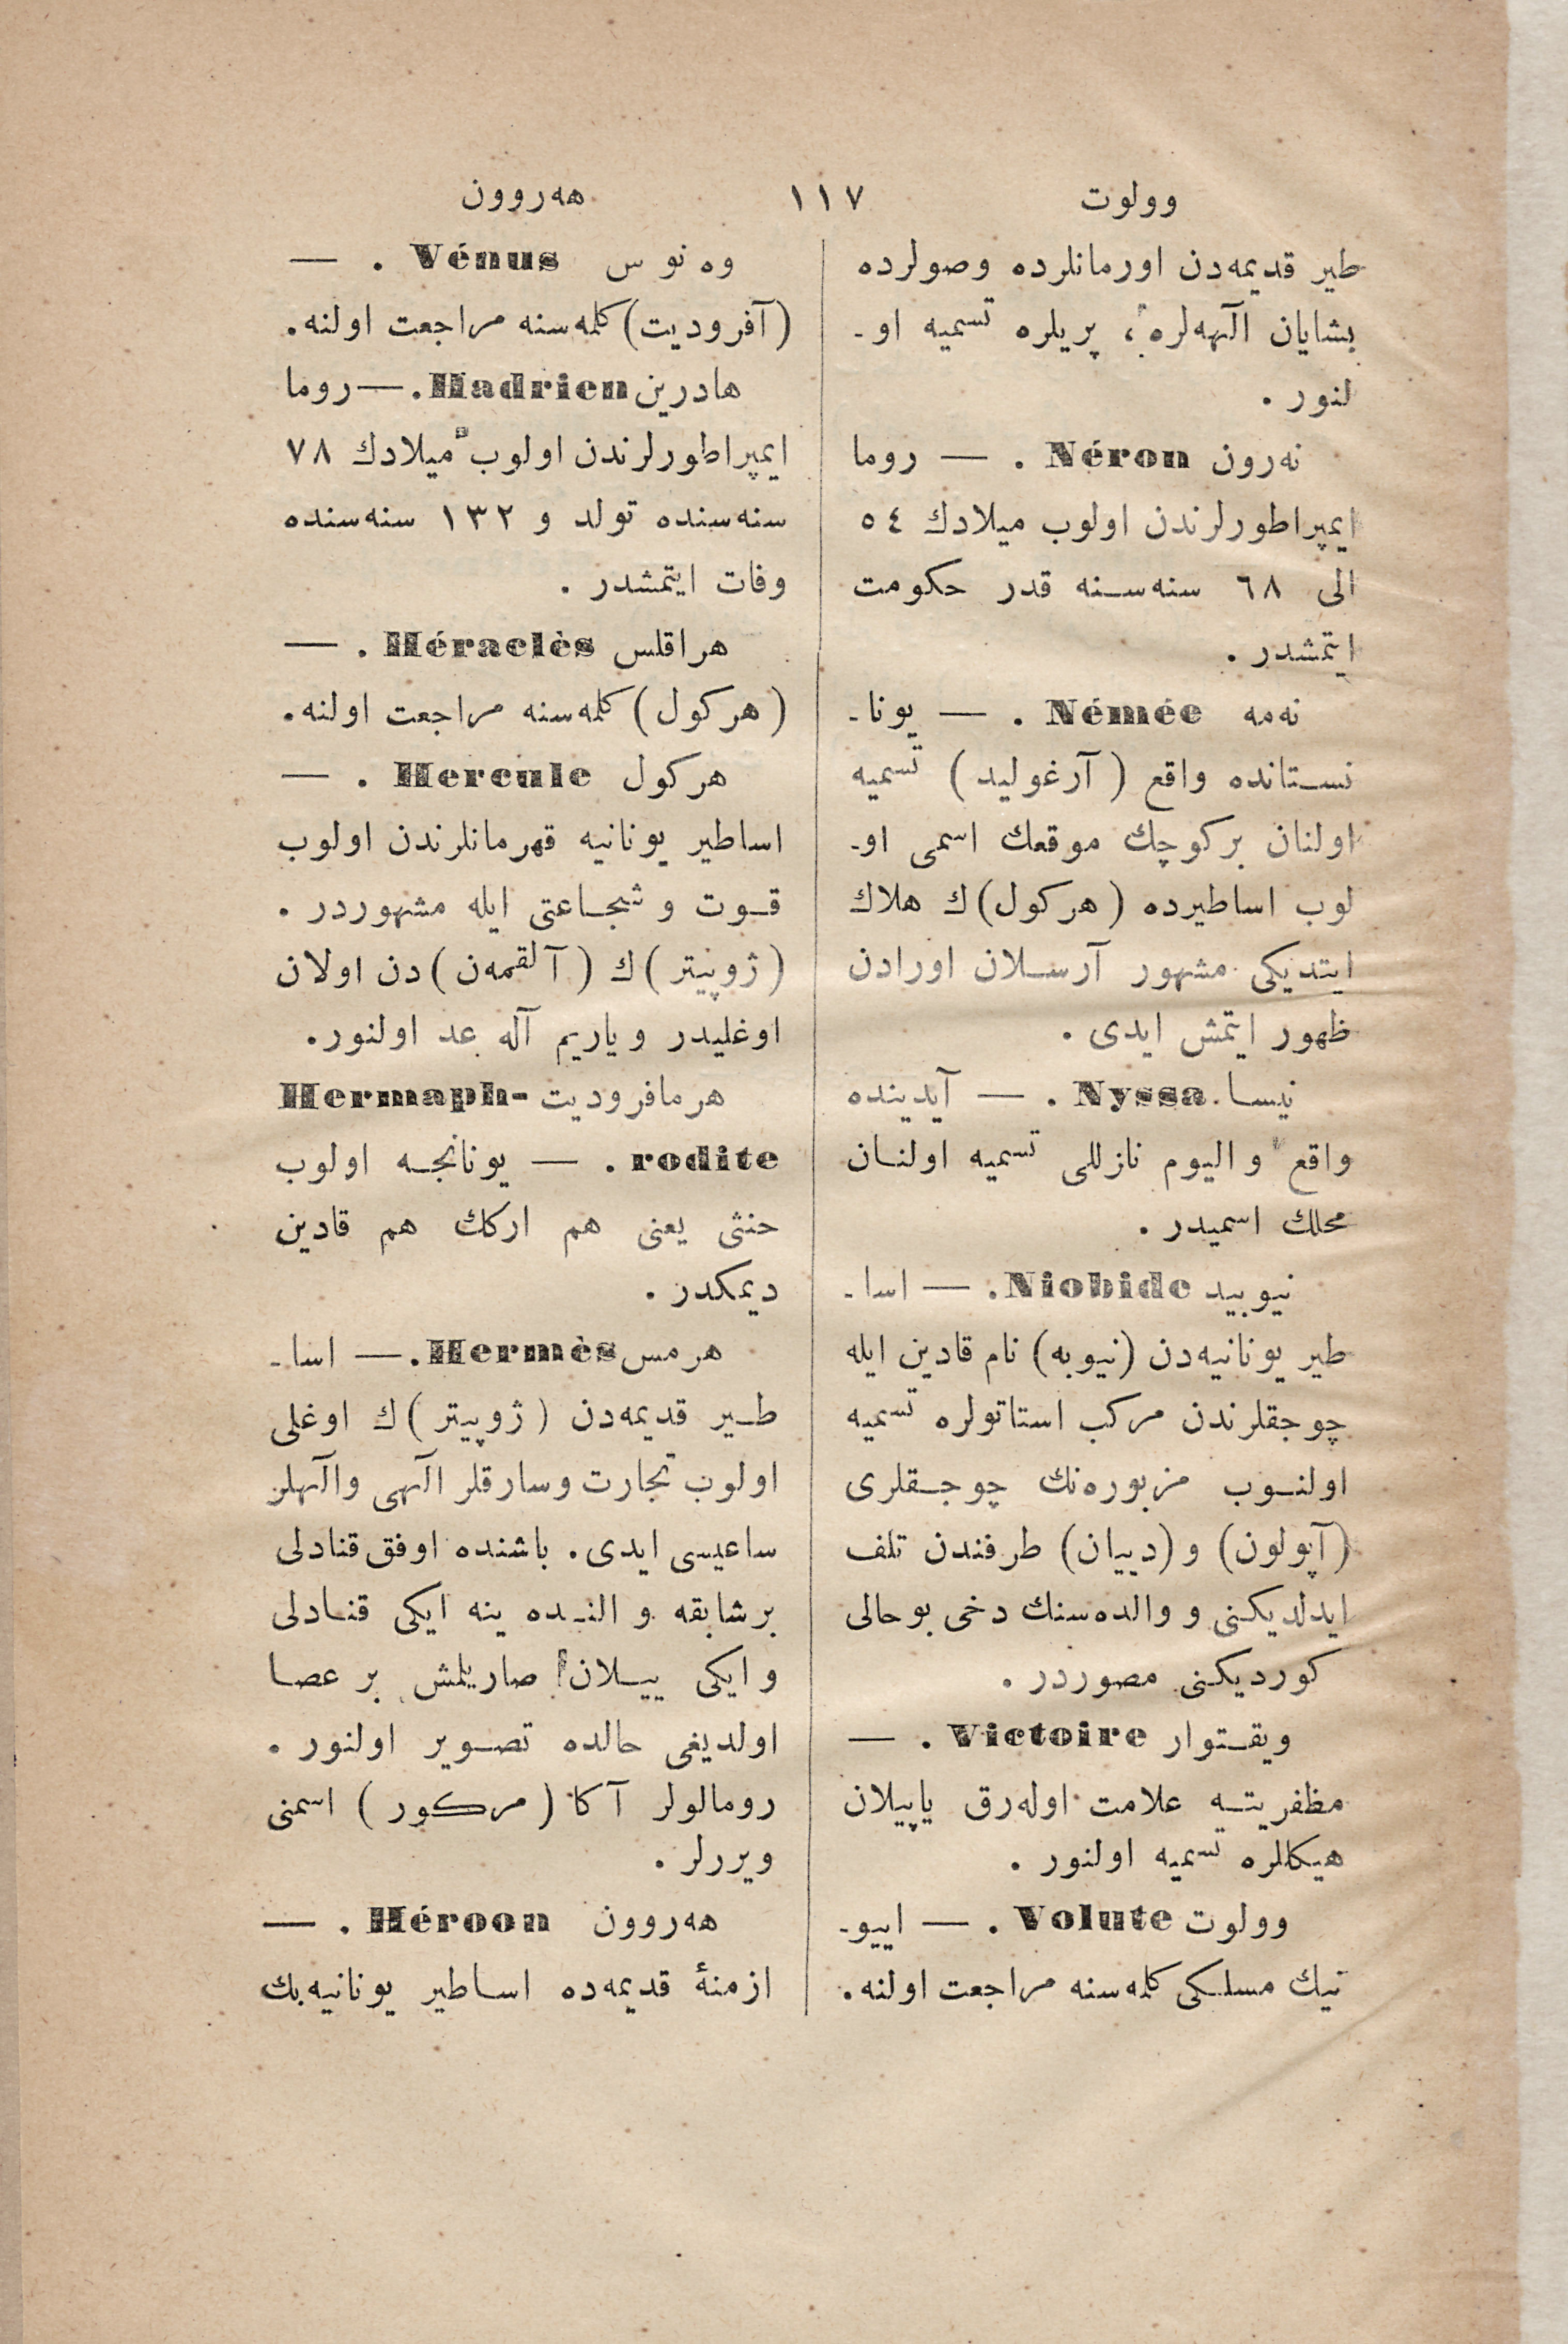 وولوت ١١٧ هه‌روون
طیر قدیمه‌دن اورمانلرده وصولرده
یشایان آلهه‌لره، پریلره تسمیه او-
لنور .
نه‌رون Néron . — روما
ایمپراطورلرندن اولوب میلادك ٥٤
الی ٦٨ سنه‌سنه قدر حکومت
ایتمشدر .
نه‌مه Némée . — یونا-
نستانده واقع (آرغولید) تسمیه
اولنان برکوچك موقعك اسمی او-
لوب اساطیرده (هرکول)ك هلاك
ایتدیکی مشهور آرسلان اورادن
ظهور ایتمش ایدی .
نیسا Nyssa . — آیدینده
واقع والیوم نازللی تسمیه اولنان
محلك اسمیدر .
نیوبید Niobide . — اسا-
طیر یونانیه‌دن (نیوبه) نام قادین ایله
چوجقلرندن مرکب استاتولره تسمیه
اولنوب مزبوره‌نك چوجقلری
(آپولون) و (دییان) طرفندن تلف
ایدلدیکنی و والده‌سنك دخی بوحالی
کوردیکنی مصوردر .
ویقتوار Victoire . —
مظفریته علامت اوله‌رق یاپیلان
هیکللره تسمیه اولنور .
وولوت Volute . — اییو-
نیك مسلکی کله‌سنه مراجعت اولنه .
وه‌نوس Vénus . —
(آفرودیت) کله‌سنه مراجعت اولنه .
هادرین Hadrien . — روما
ایمپراطورلرندن اولوب میلادك ٧٨
سنه‌سنده تولد و ١٣٢ سنه‌سنده
وفات ایتمشدر .
هراقلس Héraclès . —
(هرکول) کله‌سنه مراجعت اولنه .
هرکول Hercule . —
اساطیر یونانیه قهرمانلرندن اولوب
قوت و شجاعتی ایله مشهوردر .
(ژوپیتر)ك (آلقمه‌ن)دن اولان
اوغلیدر ویاریم آله عد اولنور .
هرمافرودیت Hermaph-
rodite . — یونانجه اولوب
حنثی یعنی هم ارکك هم قادین
دیمکدر .
هرمس Hermès . — اسا-
طیر قدیمه‌دن (ژوپیتر)ك اوغلی
اولوب تجارت وسارقلر آلهی وآلهلر
ساعیسی ایدی . باشنده اوفق قنادلی
برشابقه و النده ینه ایکی قنادلی
وایکی ییلان صاریلمش بر عصا
اولدیغی حالده تصویر اولنور .
رومالولر آکا (مرکور) اسمنی
ویررلر .
هه‌روون Héroon . —
ازمنهٔ قدیمه‌ده اساطیر یونانیه‌نك